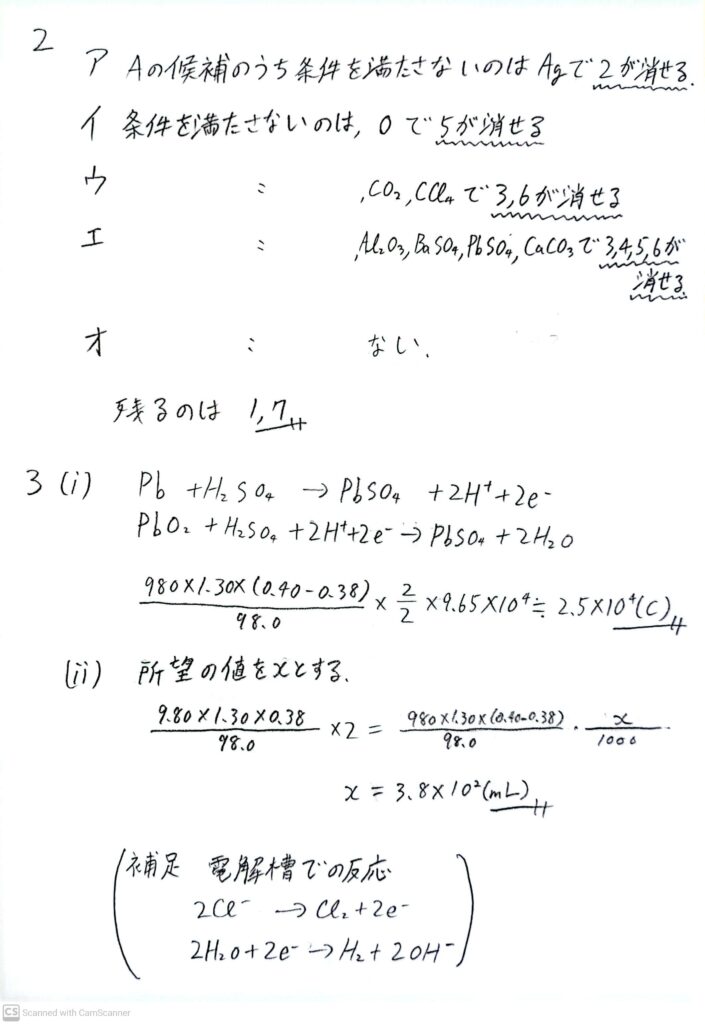 2
ア Aの候補のうち条件を満たさないのは Agで2が消せる.
イ 条件を満たさないのは, Oで5が消せる
ウ : ,CO₂,CCl₄で3,6が消せる
エ : ,Al₂O₃,BaSO₄,PbSO₄,CaCO₃で3,4,5,6が
消せる.
オ : ない.
残るのは 1,7
3 (i) Pb + H₂SO₄ → PbSO₄ + 2H⁺ + 2e⁻
PbO₂ + H₂SO₄ + 2H⁺ + 2e⁻ → PbSO₄ + 2H₂O
980×1.30×(0.40-0.38)/98.0 × 2/2 × 9.65×10⁴ ≒ 2.5×10⁴(C)
(ii) 所望の値をxとする.
9.80×1.30×0.38/98.0 ×2 = 980×1.30×(0.40-0.38)/98.0 · x/1000
x = 3.8×10²(mL)
補足 電解槽での反応
2Cl⁻ → Cl₂ + 2e⁻
2H₂O + 2e⁻ → H₂ + 2OH⁻
CS Scanned with CamScanner